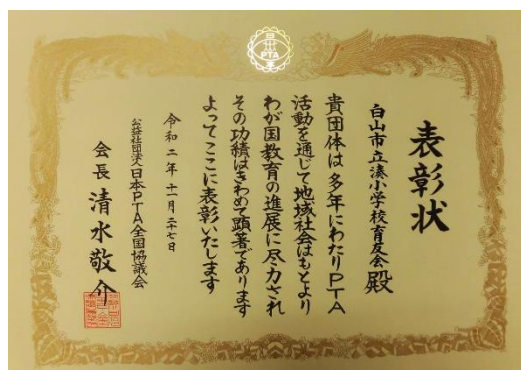 表彰状
白山市立湊小学校育友会 殿
貴団体は多年にわたりPTA
活動を通じて地域社会はもとより
わが国教育の進展に尽力され
その功績はきわめて顕著であります
よってここに表彰いたします
令和二年十一月二十七日
公益社団法人日本PTA全国協議会
会長 清水敬介
PTA